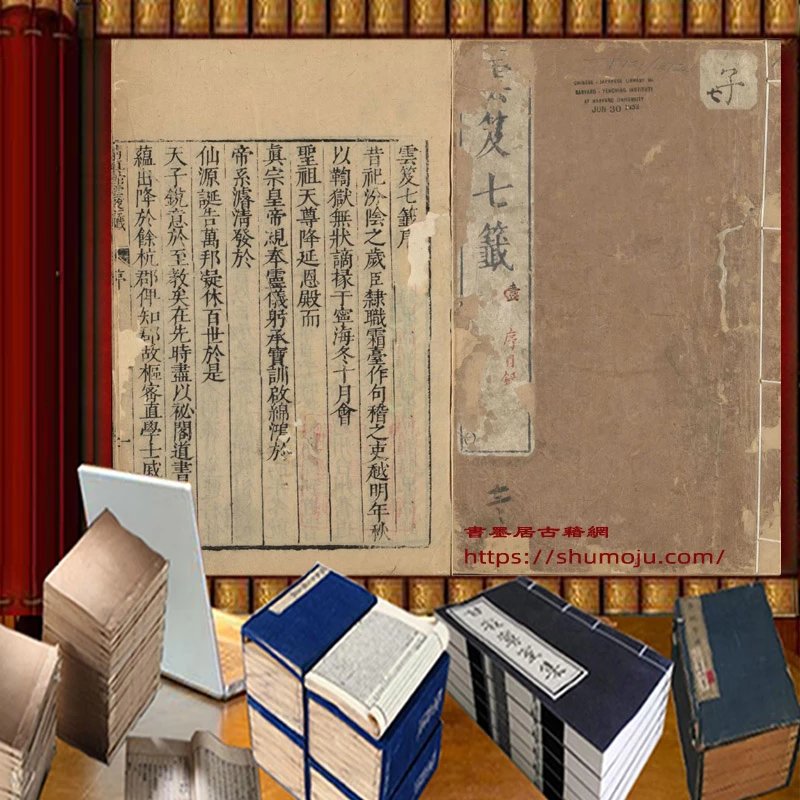 子
七
CHINESE - JAPANESE LIBRARY OF
HARVARD - YENCHING INSTITUTE
AT HARVARD UNIVERSITY
JUN 30
笈七籤
壹
序目錄
雲笈七籤序
昔祀汾陰之歲臣隸職霜臺作句稽之吏越明年秋
以鞫獄無狀謫掾于寧海冬十月會
聖祖天尊降延恩殿而
眞宗皇帝親奉靈儀躬承寶訓啟綿鴻於
帝系濬清發於
仙源誕告萬邦凝休百世於是
天子銳意於至教矣在先時盡以祕閣道書
蘊出降於餘杭郡俾知郡故樞密直學士戚
書墨居古籍網
https://shumoju.com/